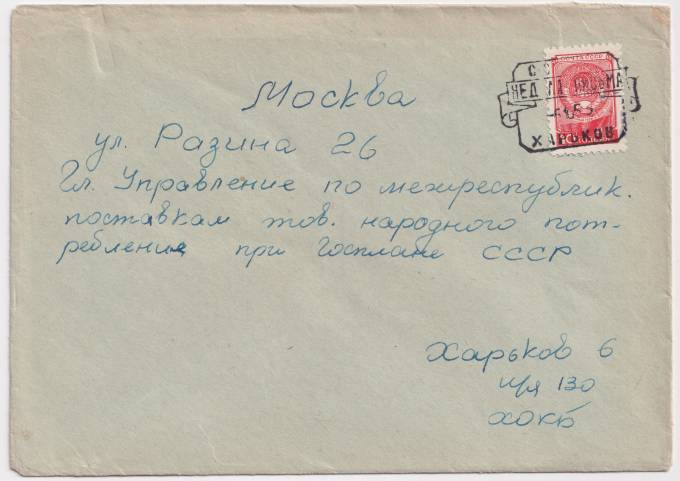 ПОЧТА СССР
НЕДЕЛЯ ПИСЬМА
ХАРЬКОВ
Москва
ул. Разина 26
Гл. Управление по межреспублик.
поставкам тов. народного пот-
ребления при Госплане СССР
Харьков 6
п/я 130
ХОКБ